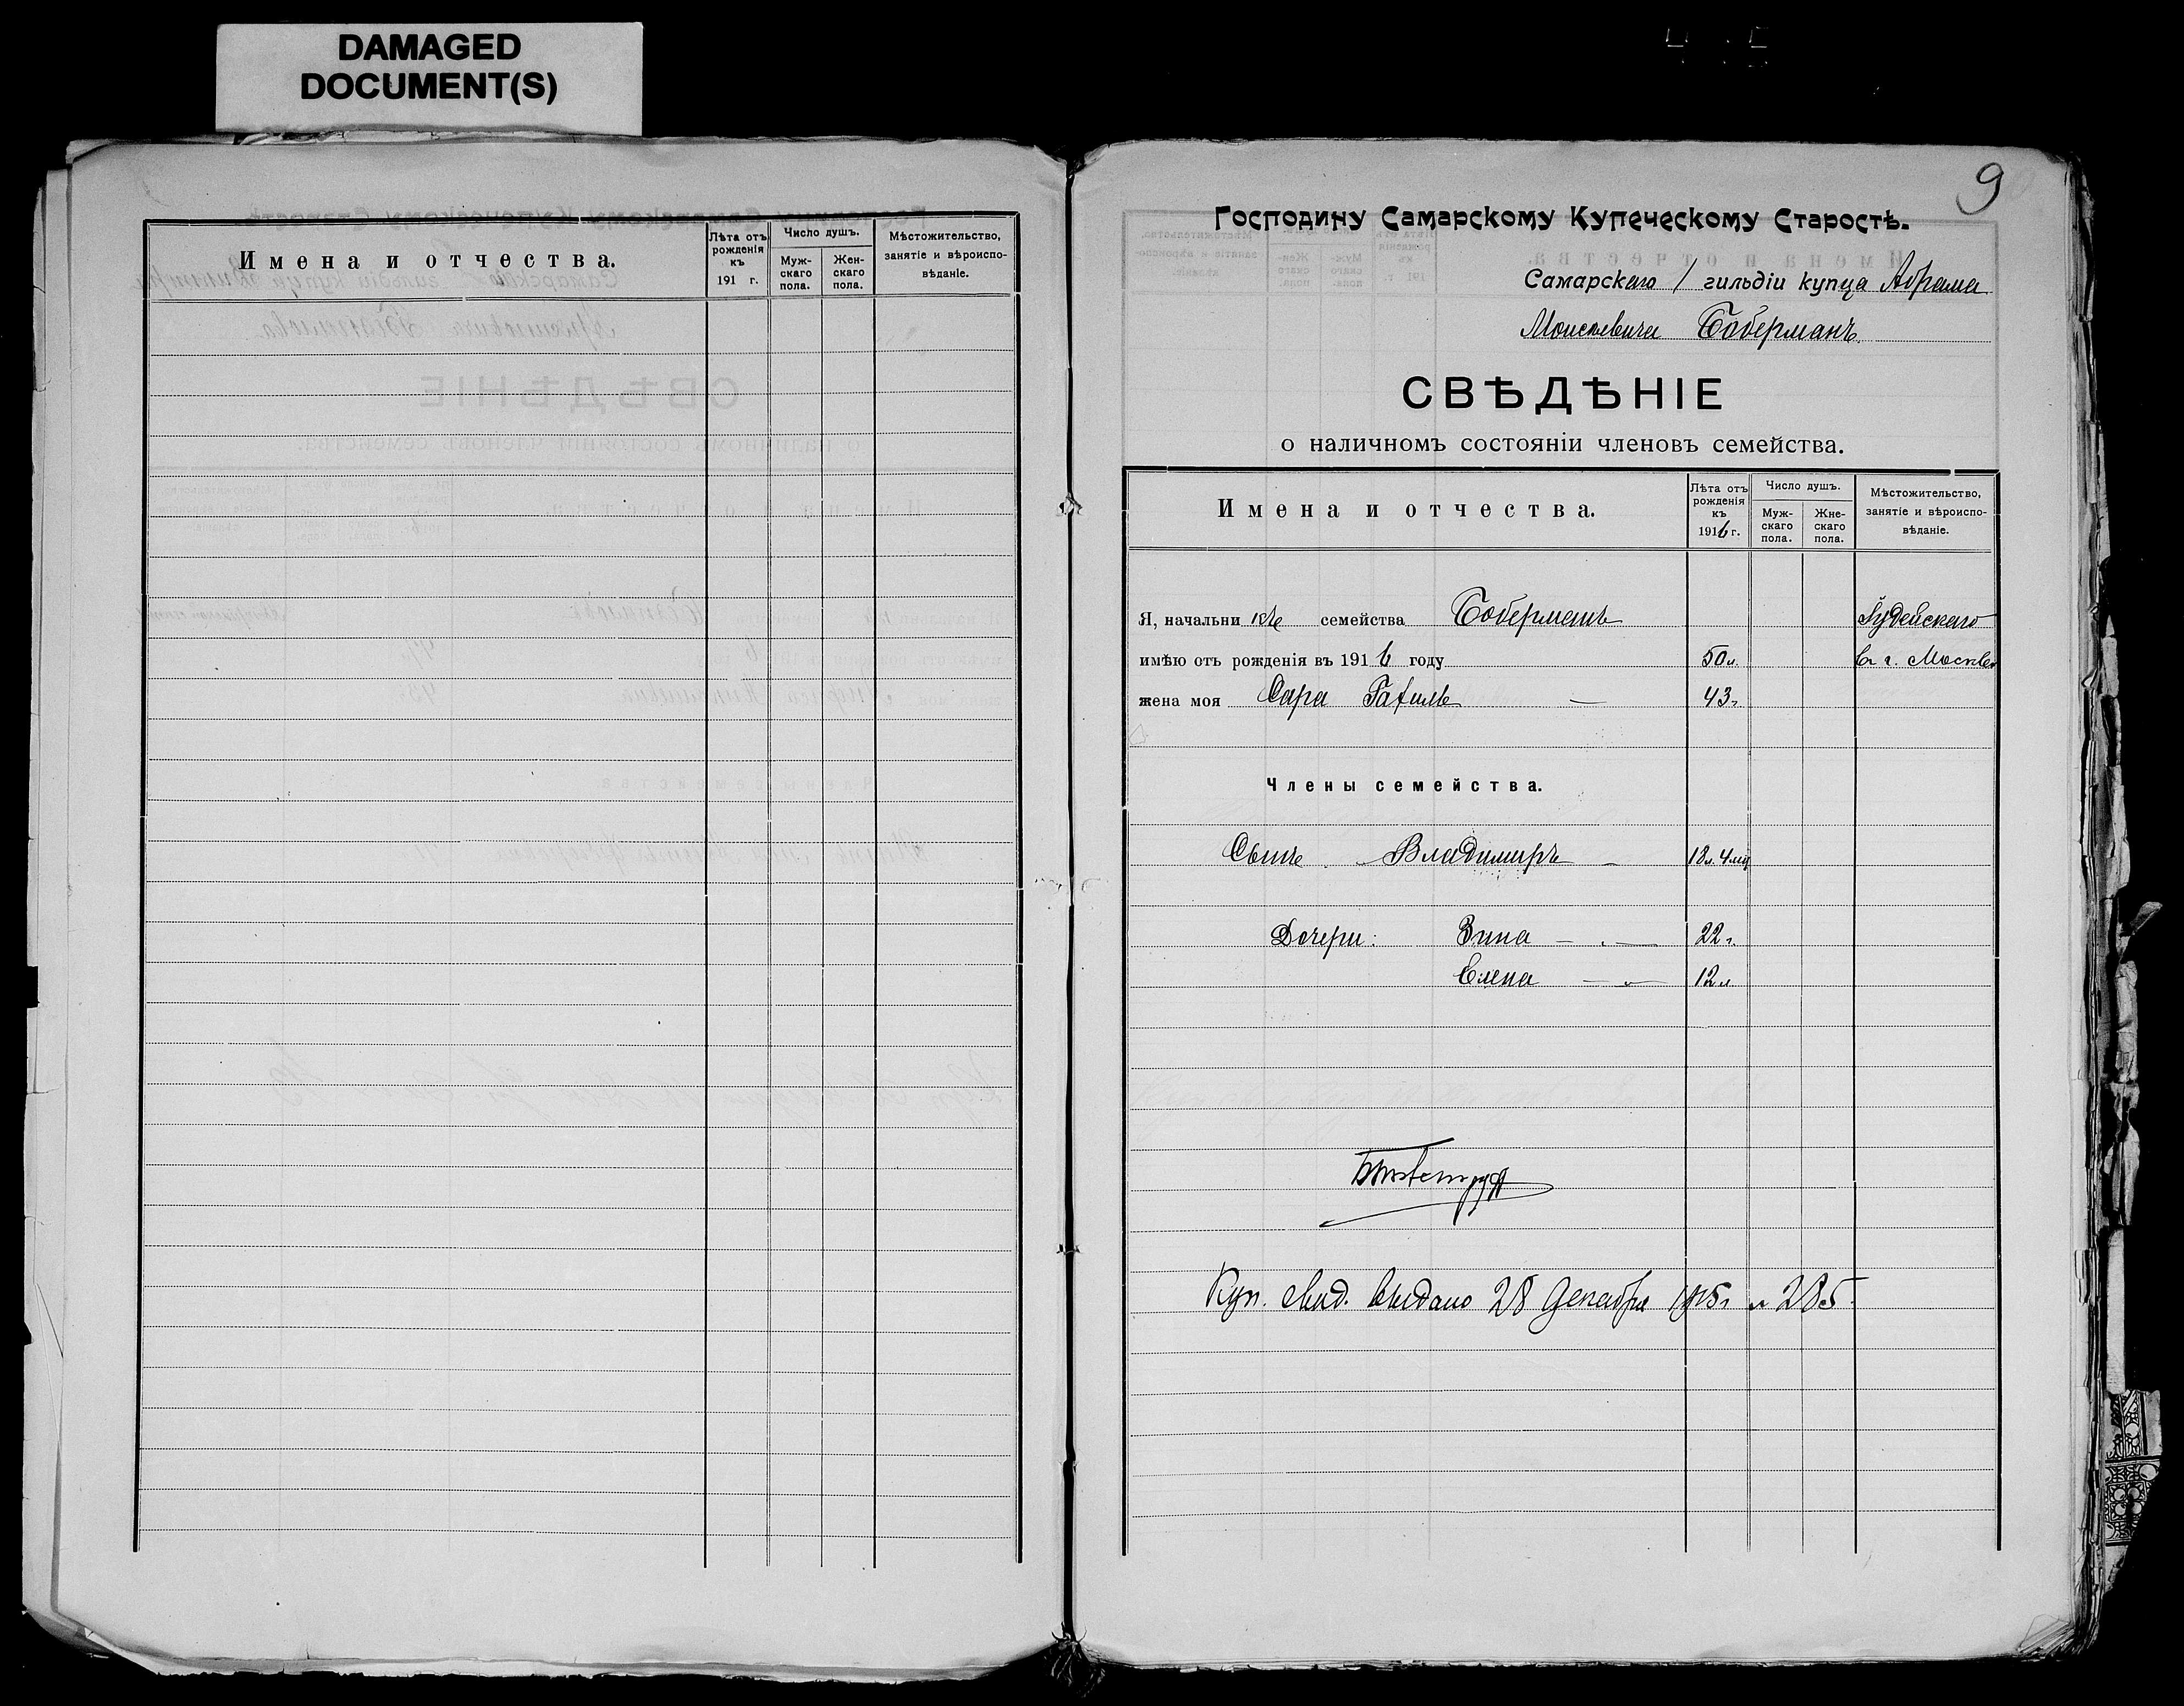 DAMAGED
DOCUMENT(S)
Имена и отчества.
Лѣта отъ рожденія къ 191 г.
Число душъ.
Муж-скаго пола.
Жен-скаго пола.
Мѣстожительство, занятіе и вѣроиспо-вѣданіе.
9
Господину Самарскому Купеческому Старостѣ.
Самарскаго 1 гильдіи купца Абрама
Моисеевича Боберманъ.
СВѢДѢНІЕ
о наличномъ состояніи членовъ семейства.
Имена и отчества.
Лѣта отъ рожденія къ 1916 г.
Число душъ.
Муж-скаго пола.
Жне-скаго пола.
Мѣстожительство, занятіе и вѣроиспо-вѣданіе.
Я, начальникъ семейства Боберманъ Іудейскаго
имѣю отъ рожденія въ 1916 году 50 л. въ г. Москвѣ
жена моя Сара 43 г.
Члены семейства.
Сынъ Владимиръ 18 л. 4 мц
Дочери: Зина 22 г.
Елена 12 л.
Куп. свид. выдано 28 Декабря 1915 г. 285.